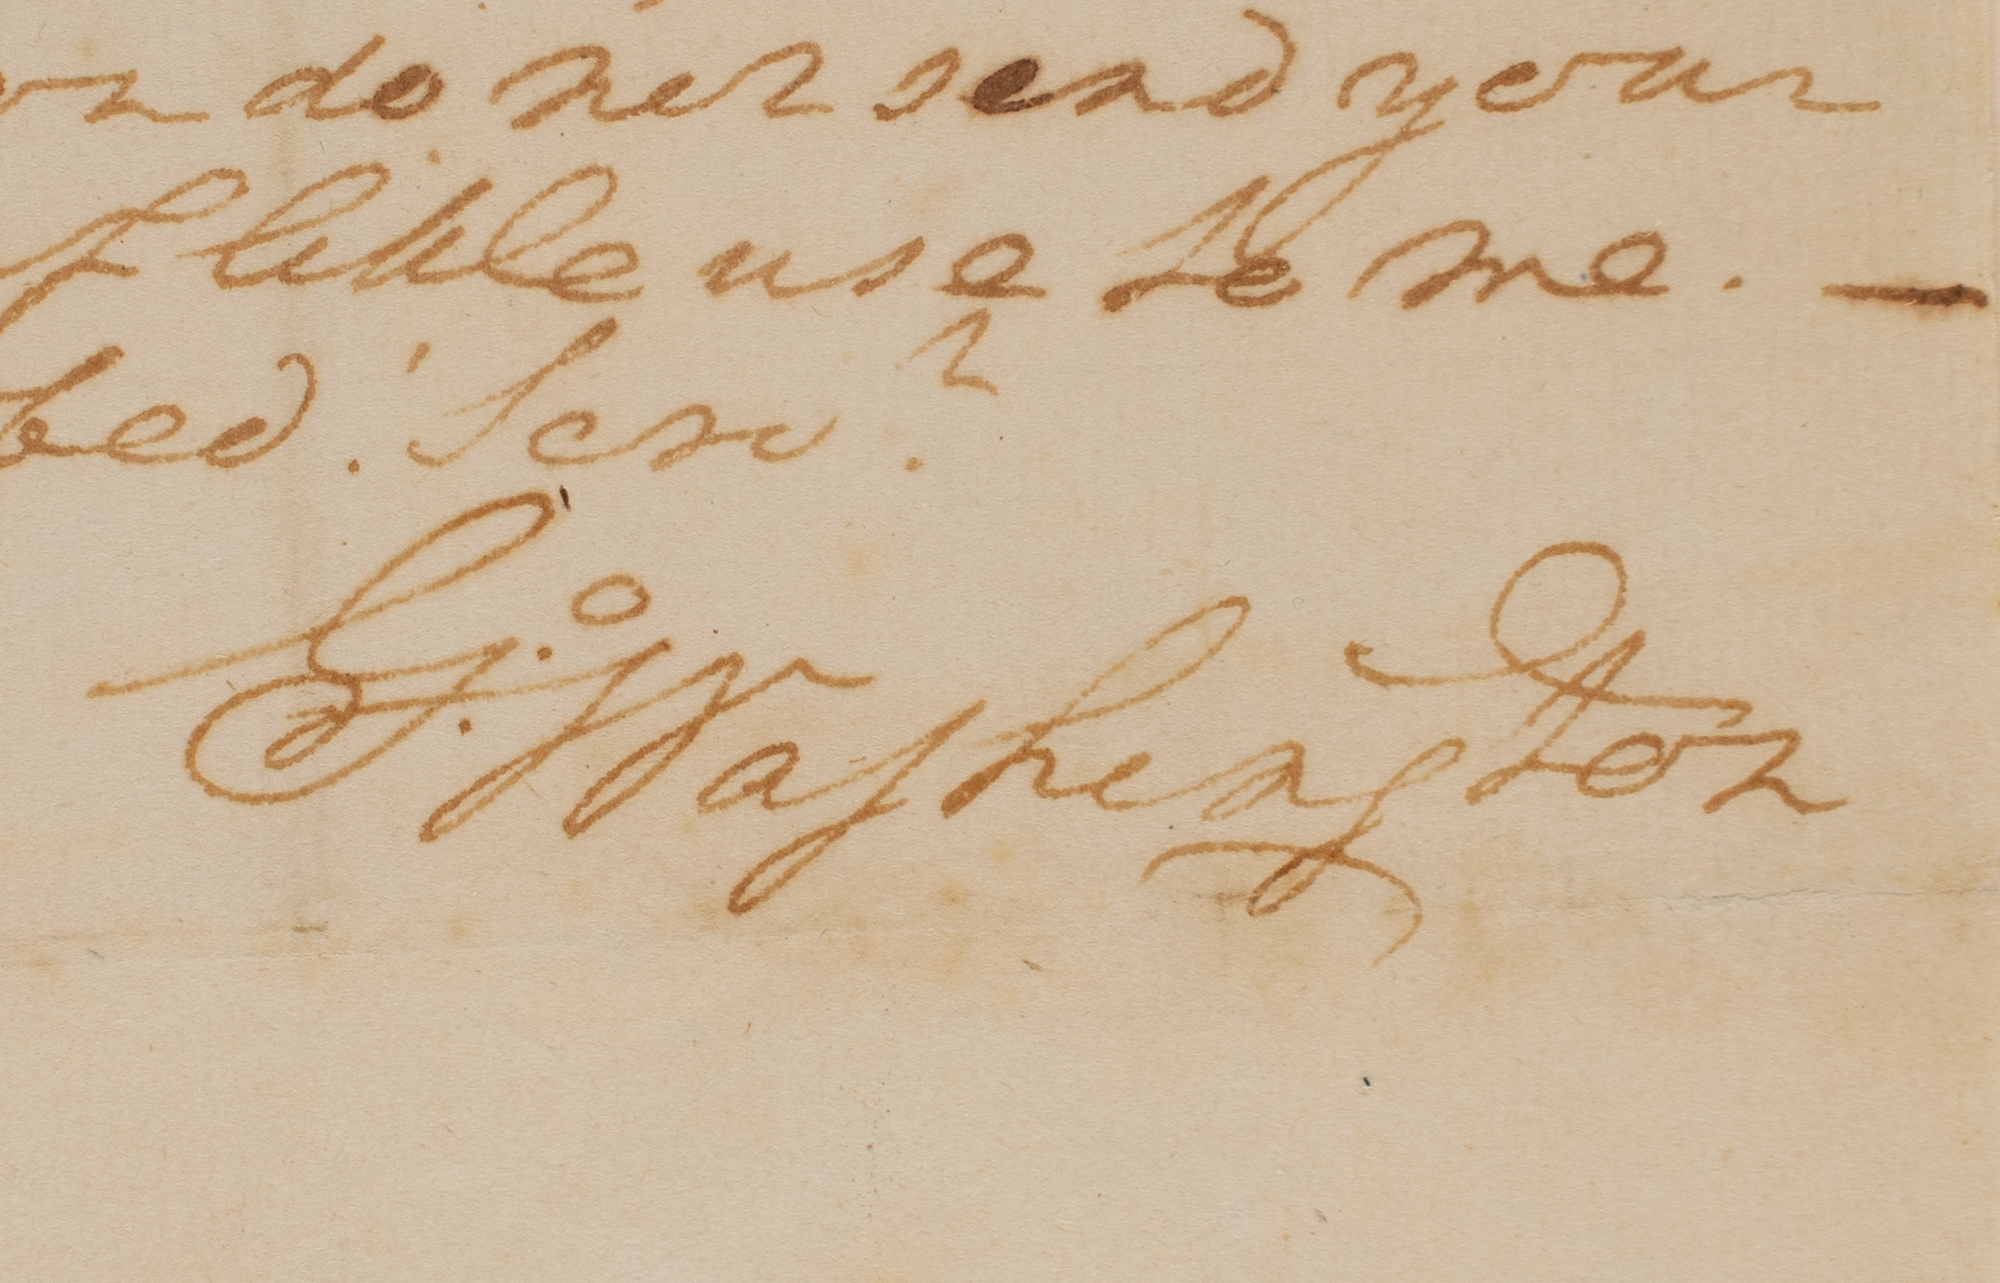 do not send your
f little use to me. —
bed. Serv.t
G:o Washington